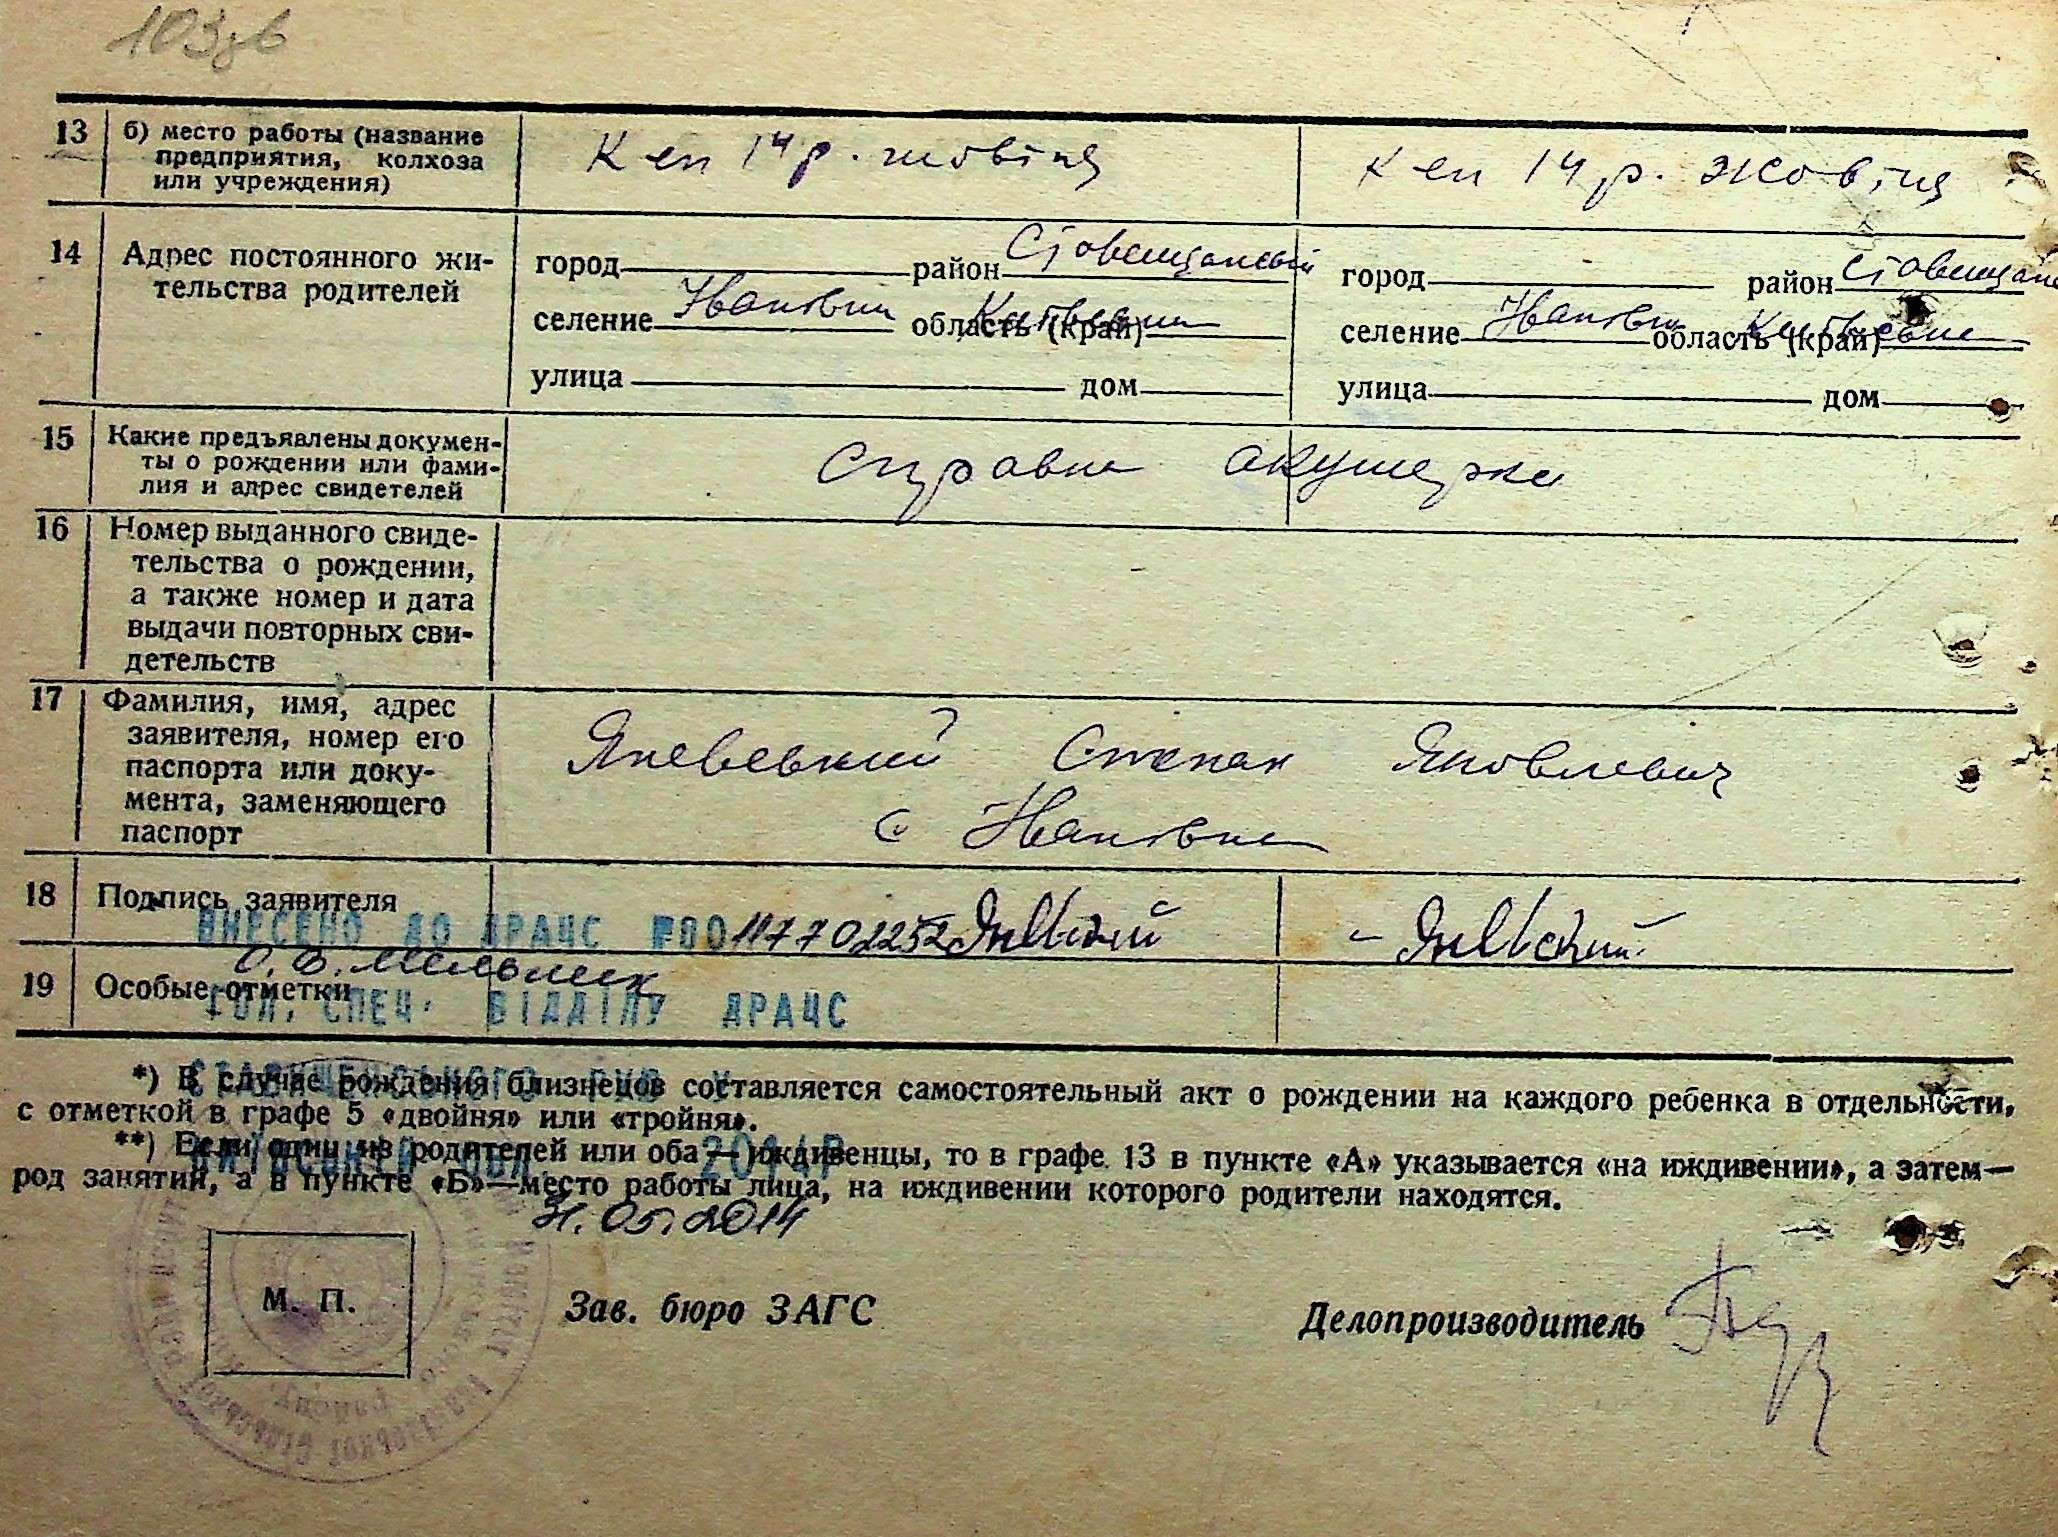 103зв
13 б) место работы (название
предприятия, колхоза
или учреждения)
К-сп 14 р. жовтня К-сп 14 р. жовтня
14 Адрес постоянного жи-
тельства родителей
город район Ставищанський город район Ставищанс
селение Іванівки область (край) Київська селение Іванівки область (край) Київська
улица дом улица дом
15 Какие предъявлены докумен-
ты о рождении или фами-
лия и адрес свидетелей
Справка акушерки
16 Номер выданного свиде-
тельства о рождении,
а также номер и дата
выдачи повторных сви-
детельств
17 Фамилия, имя, адрес
заявителя, номер его
паспорта или доку-
мента, заменяющего
паспорт
Яневський Степан Яковлевич
с Іванівка
18 Подпись заявителя
ВНЕСЕНО ДО ДРАЦС №00117702252
О. В. Мельник
19 Особые отметки
ГОЛ. СПЕЦ. ВІДДІЛУ ДРАЦС
СТАВИЩЕНСЬКОГО РУЮ У
*) В случае рождения близнецов составляется самостоятельный акт о рождении на каждого ребенка в отдельности,
с отметкой в графе 5 «двойня» или «тройня».
КИЇВСЬКІЙ ОБЛ. 2014Р
**) Если один из родителей или оба — иждивенцы, то в графе 13 в пункте «А» указывается «на иждивении», а затем—
род занятий, а в пункте «Б»—место работы лица, на иждивении которого родители находятся.
31.05.2014
М. П.
Зав. бюро ЗАГС Делопроизводитель